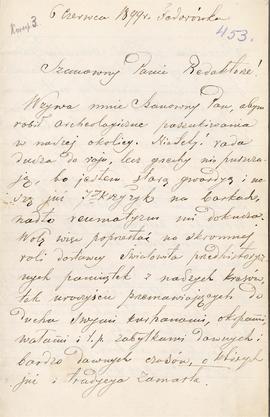 6 Czerwca 1899 r. Fedorówka
453.
Szanowny Panie Redaktorze!
Wzywa mnie Szanowny Pan, abym
robił archeologiczne poszukiwania
w naszej okolicy. Niestety! rada
dusza do raju, lecz grzechy nie puszcza-
ją, bo jestem starą gwardyą i no-
szę już krzyżyk na barkach,
nadto reumatyzm mi dokucza.
Wolę więc poprzestać na skromnej
roli dostawcy Światowita przedhistory-
cznych pamiątek z naszych kresów,
tak uroczyście przemawiających do
ducha swymi kurhanami, okopami,
wałami i t.p. zabytkami dawnych i
bardzo dawnych czasów, o których
już i tradycya zamarła.